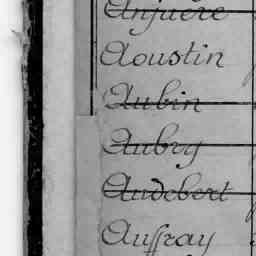 Anjuere
Aoustin
Aubin
Aubry
Audebert
Auffray